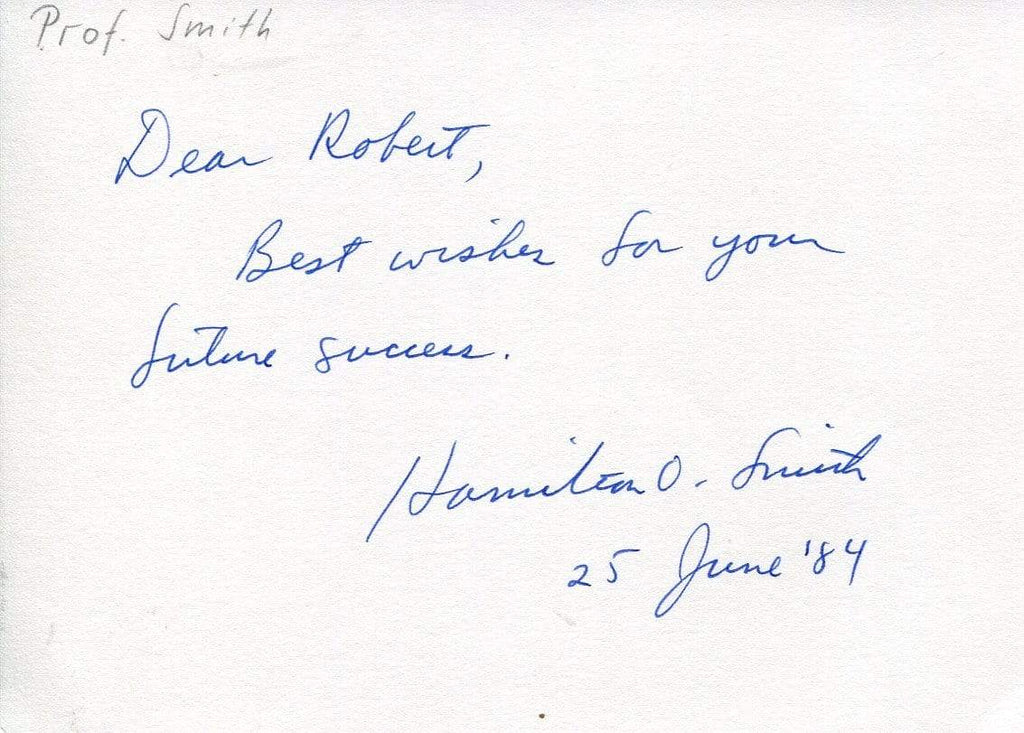 Prof. Smith
Dear Robert,
Best wishes for your
future success.
Hamilton O. Smith
25 June '84